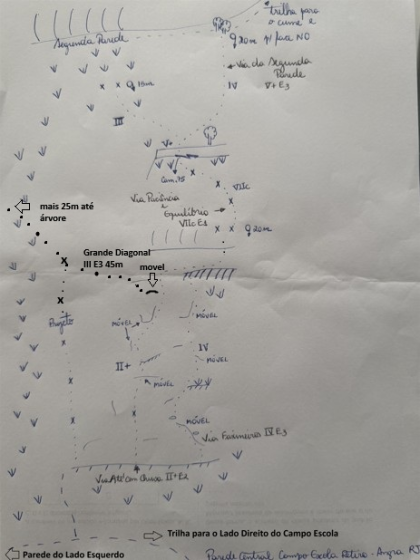 trilha para
o cume e
20m p/ face NO
Segunda Parede
Via da Segunda
Parede
IV
V+E3
15m
III
V+
Cam. 75
VIIc
Via Paciência
e
Equilíbrio
VIIc E3
20m
mais 25m até
árvore
Grande Diagonal
III E3 45m
movel
Projeto
MÓVEL
MÓVEL
IV
MÓVEL
II+
MÓVEL
MÓVEL
Via Faxineira IV E3
Via Até com Chuva II+E2
Trilha para o Lado Direito do Campo Escola
Parede do Lado Esquerdo
Parede Central Campo Escola Retiro - Angra RJ